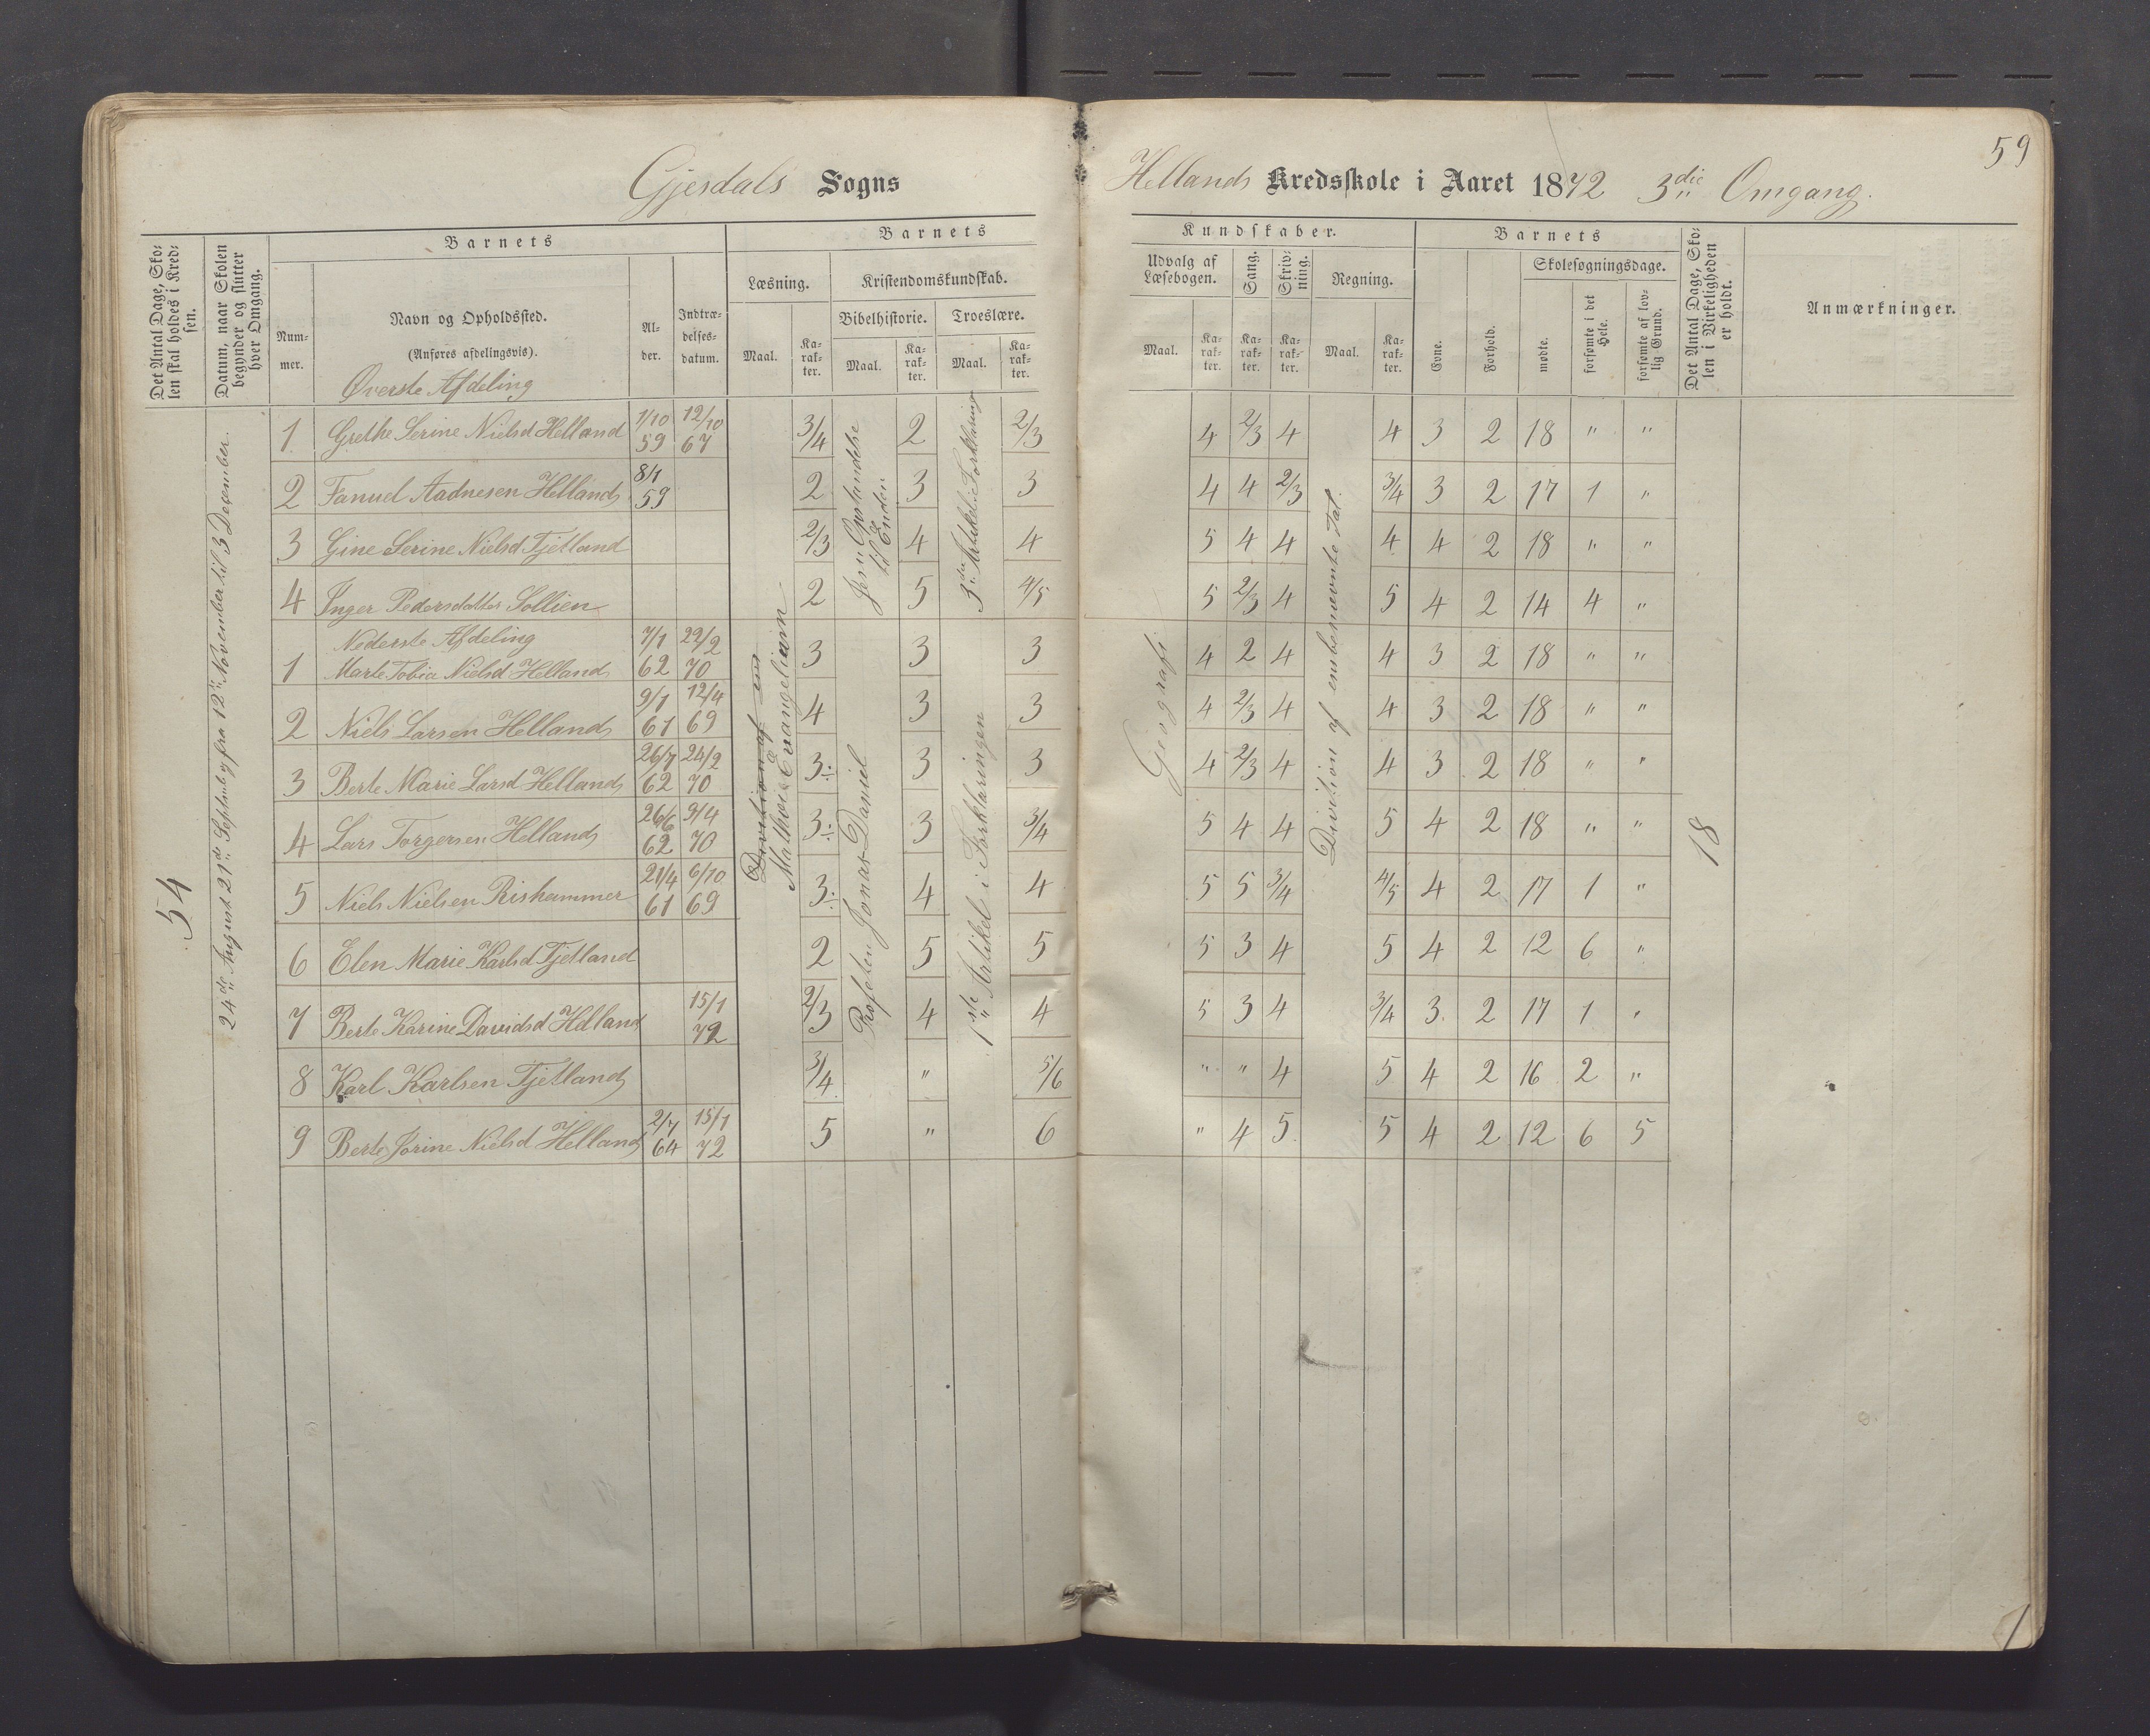 59
Gjesdals Sogns
Hellands Kredsskole i Aaret 1872 3die Omgang.
Det Antal Dage, Skolen skal holdes i Kredsen.
Datum, naar Skolen begynder og slutter hver Omgang.
Barnets
Barnets
Kundskaber.
Barnets
Det Antal Dage, Skolen i Virkeligheden er holdt.
Anmærkninger.
Nummer.
Navn og Opholdssted.
(Anføres afdelingsvis).
Alder.
Indtrædelsesdatum.
Læsning.
Kristendomskundskab.
Udvalg af Læsebogen.
Sang.
Skrivning.
Regning.
Evne.
Forhold.
Skolesøgningsdage.
Bibelhistorie.
Troeslære.
mødte.
forsømte i det Hele.
forsømte af lovlig Grund.
Maal. Karakter. Maal. Karakter. Maal. Karakter.
Maal. Karakter. Karakter. Karakter. Maal. Karakter.
Øverste Afdeling
1 Grethe Serine Nielsd Helland 1/10 59 12/10 67 3/4 2 2/3 4 2/3 4 4 3 2 18 " "
2 Fanuel Aadnesen Helland 8/1 59 2 3 3 4 4 2/3 3/4 3 2 17 1 "
3 Gine Serine Nielsd Tjetland 2/3 4 4 5 4 4 4 4 2 18 " "
4 Inger Pedersdatter Sollien 2 5 4/5 5 2/3 4 5 4 2 14 4 "
Nederste Afdeling
1 Marte Tobia Nielsd Helland 7/1 62 22/2 70 3 3 3 4 2 4 4 3 2 18 " "
2 Niels Larsen Helland 9/1 61 12/4 69 4 3 3 4 2/3 4 4 3 2 18 " "
3 Berte Marie Larsd Helland 26/7 62 24/2 70 3÷ 3 3 4 2/3 4 4 3 2 18 " "
4 Lars Torgersen Helland 26/6 62 9/4 70 3÷ 3 3/4 5 4 4 5 4 2 18 " "
5 Niels Nielsen Rishammer 21/4 61 6/10 69 3÷ 4 4 5 5 3/4 4/5 4 2 17 1 "
6 Elen Marie Karlsd Tjetland 2 5 5 5 3 4 5 4 2 12 6 "
7 Berte Karine Davidsd Helland 15/1 72 2/3 4 4 5 3 4 3/4 3 2 17 1 "
8 Karl Karlsen Tjetland 3/4 " 5/6 " " 4 5 4 2 16 2 "
9 Berte Jorine Nielsd Helland 2/7 64 15/1 72 5 " 6 " 4 5 5 4 2 12 6 5
54
24de August 21de Septemb og fra 12te November til 3 December.
Division af en
Matthæi Evangelium
Jesu Opstandelse til Enden
Profeten Jonas Daniel
3die Artikel i Forklaring
1ste Artikel i Forklaringen
Geografi
Division af eensbenævnte Tal.
18